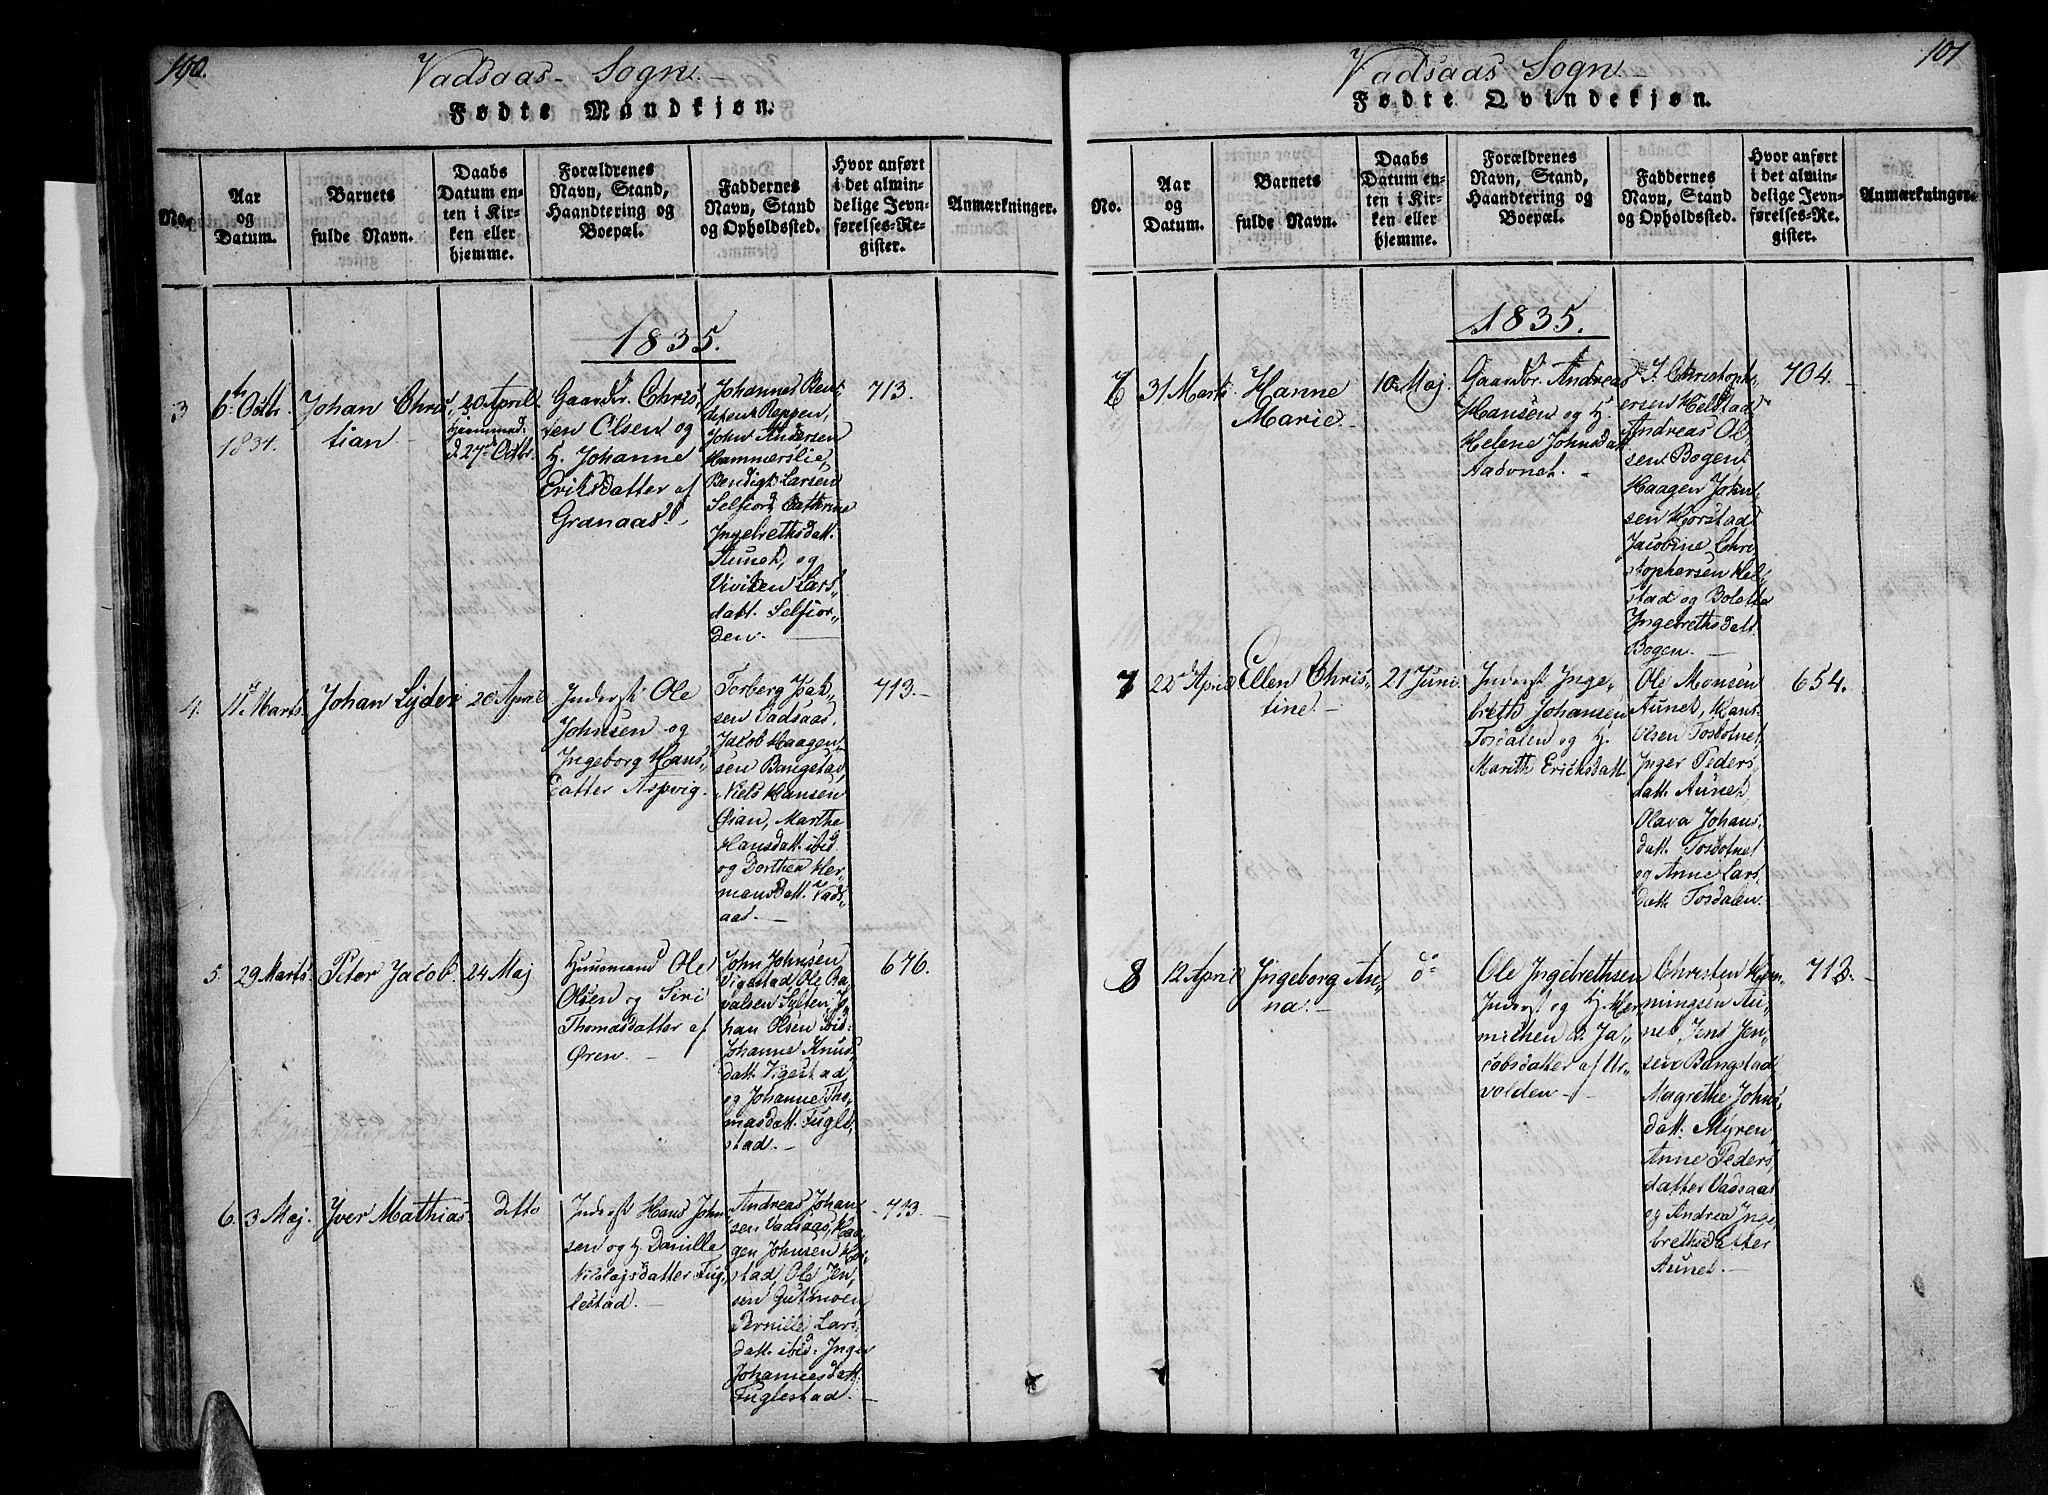 100.
Vadsaas Sogn.
Fødte Mandkjøn.
No.
Aar
og
Datum.
Barnets
fulde Navn.
Daabs
Datum en-
ten i Kir-
ken eller
hjemme.
Forældrenes
Navn, Stand,
Haandtering og
Boepæl.
Faddernes
Navn, Stand
og Opholdssted.
Hvor anført
i det almin-
delige Jevn-
førelses-Re-
gister.
Anmærkninger.
1835.
3
6te Octbr.
1834.
Johan Chris-
tian
20 April
hjemmed.
d 27de Octbr.
Gaardbr. Chris-
ten Olsen og
H. Johanne
Eriksdatter af
Granaas.
Johannes Bent-
sen Reppen,
John Andersen
Hammerslie,
Bendigt Larsen
Selfiord, Cathrine
Ingebrethsdatt.
Aunet, og
Larsdatt. Selfior-
den.
713.
4.
11te Marts
Johan Lyder
20 April
Inderst Ole
Johnsen og
Ingeborg Hans-
datter Aspvig.
Torberg Isak-
sen Vadsaas,
Jacob Haagen-
sen Bangstad,
Niels Hansen
Øian, Marthe
Hansdatt. ibid
og Dorthea Her-
mansdatt. Vads-
aas.
713.
5.
29 Marts
Peter Jacob
24 Maj
Huusmand Ole
Olsen og Siri
Thomasdatter af
Øren.
John Johnsen
Vigestad, Ole
Johan Olsen ibid.
Johanne Knuds-
datt. Vigestad
og Johanne Tho-
masdatt. Fugle-
stad.
676.
6.
3 Maj.
Iver Mathias
Ditto
Inderst Hans John-
sen og H. Pernille
Nicolajsdatter Fug-
lestad.
Andreas Johan-
sen Vadsaas, Haa-
gen Johnsen Hor-
stad, Ole Jen-
sen Gutvigen,
Pernille Lars-
datt. ibid. Inger
Johannesdatt.
Fuglestad.
713.
101
Vadsaas Sogn.
Fødte Qvindekjøn.
No.
Aar
og
Datum.
Barnets
fulde Navn.
Daabs
Datum en-
ten i Kir-
ken eller
hjemme.
Forældrenes
Navn, Stand,
Haandtering og
Boepæl.
Faddernes
Navn, Stand
og Opholdssted.
Hvor anført
i det almin-
delige Jevn-
førelses-Re-
gister.
Anmærkninger.
1835.
6
31 Marts
Hanne
Marie
10 Maj
Gaardbr. Andreas
Hansen og H.
Helene Johnsdatt.
Aavnet.
I. Christoph-
ersen Helstad
Andreas Ol-
sen Bogen,
Haagen John-
sen Horstad
Jacobine Chri-
stophersen Hel-
stad og Bolette
Ingebrethsdatt.
Bogen.
704.
7
22de April
Ellen Chris-
tine
21 Juni
Inderst Inge-
breth Johansen
Tosdalen og H.
Mareth Ericksdatt.
Ole Monsen
Aunet,
Olsen Tosbotnet
Inger Peders-
datt. Aunet,
Olava Johans-
datt. Tosbotnet
og Anne Lars-
datt. Tosdalen.
654.
8
12 April
Ingeborg An-
na.
do
Ole Ingebrethsen
Inderst og H.
Ja-
cobsdatter af Ur-
volden
Christen Hem-
mingsen Au-
net, Jens Jen-
sen Bangstad
Magrethe Johns-
datt. Myren,
Anne Peders-
datter Vadsaas
og Andrea Inge-
brethsdatter
Aunet.
713.